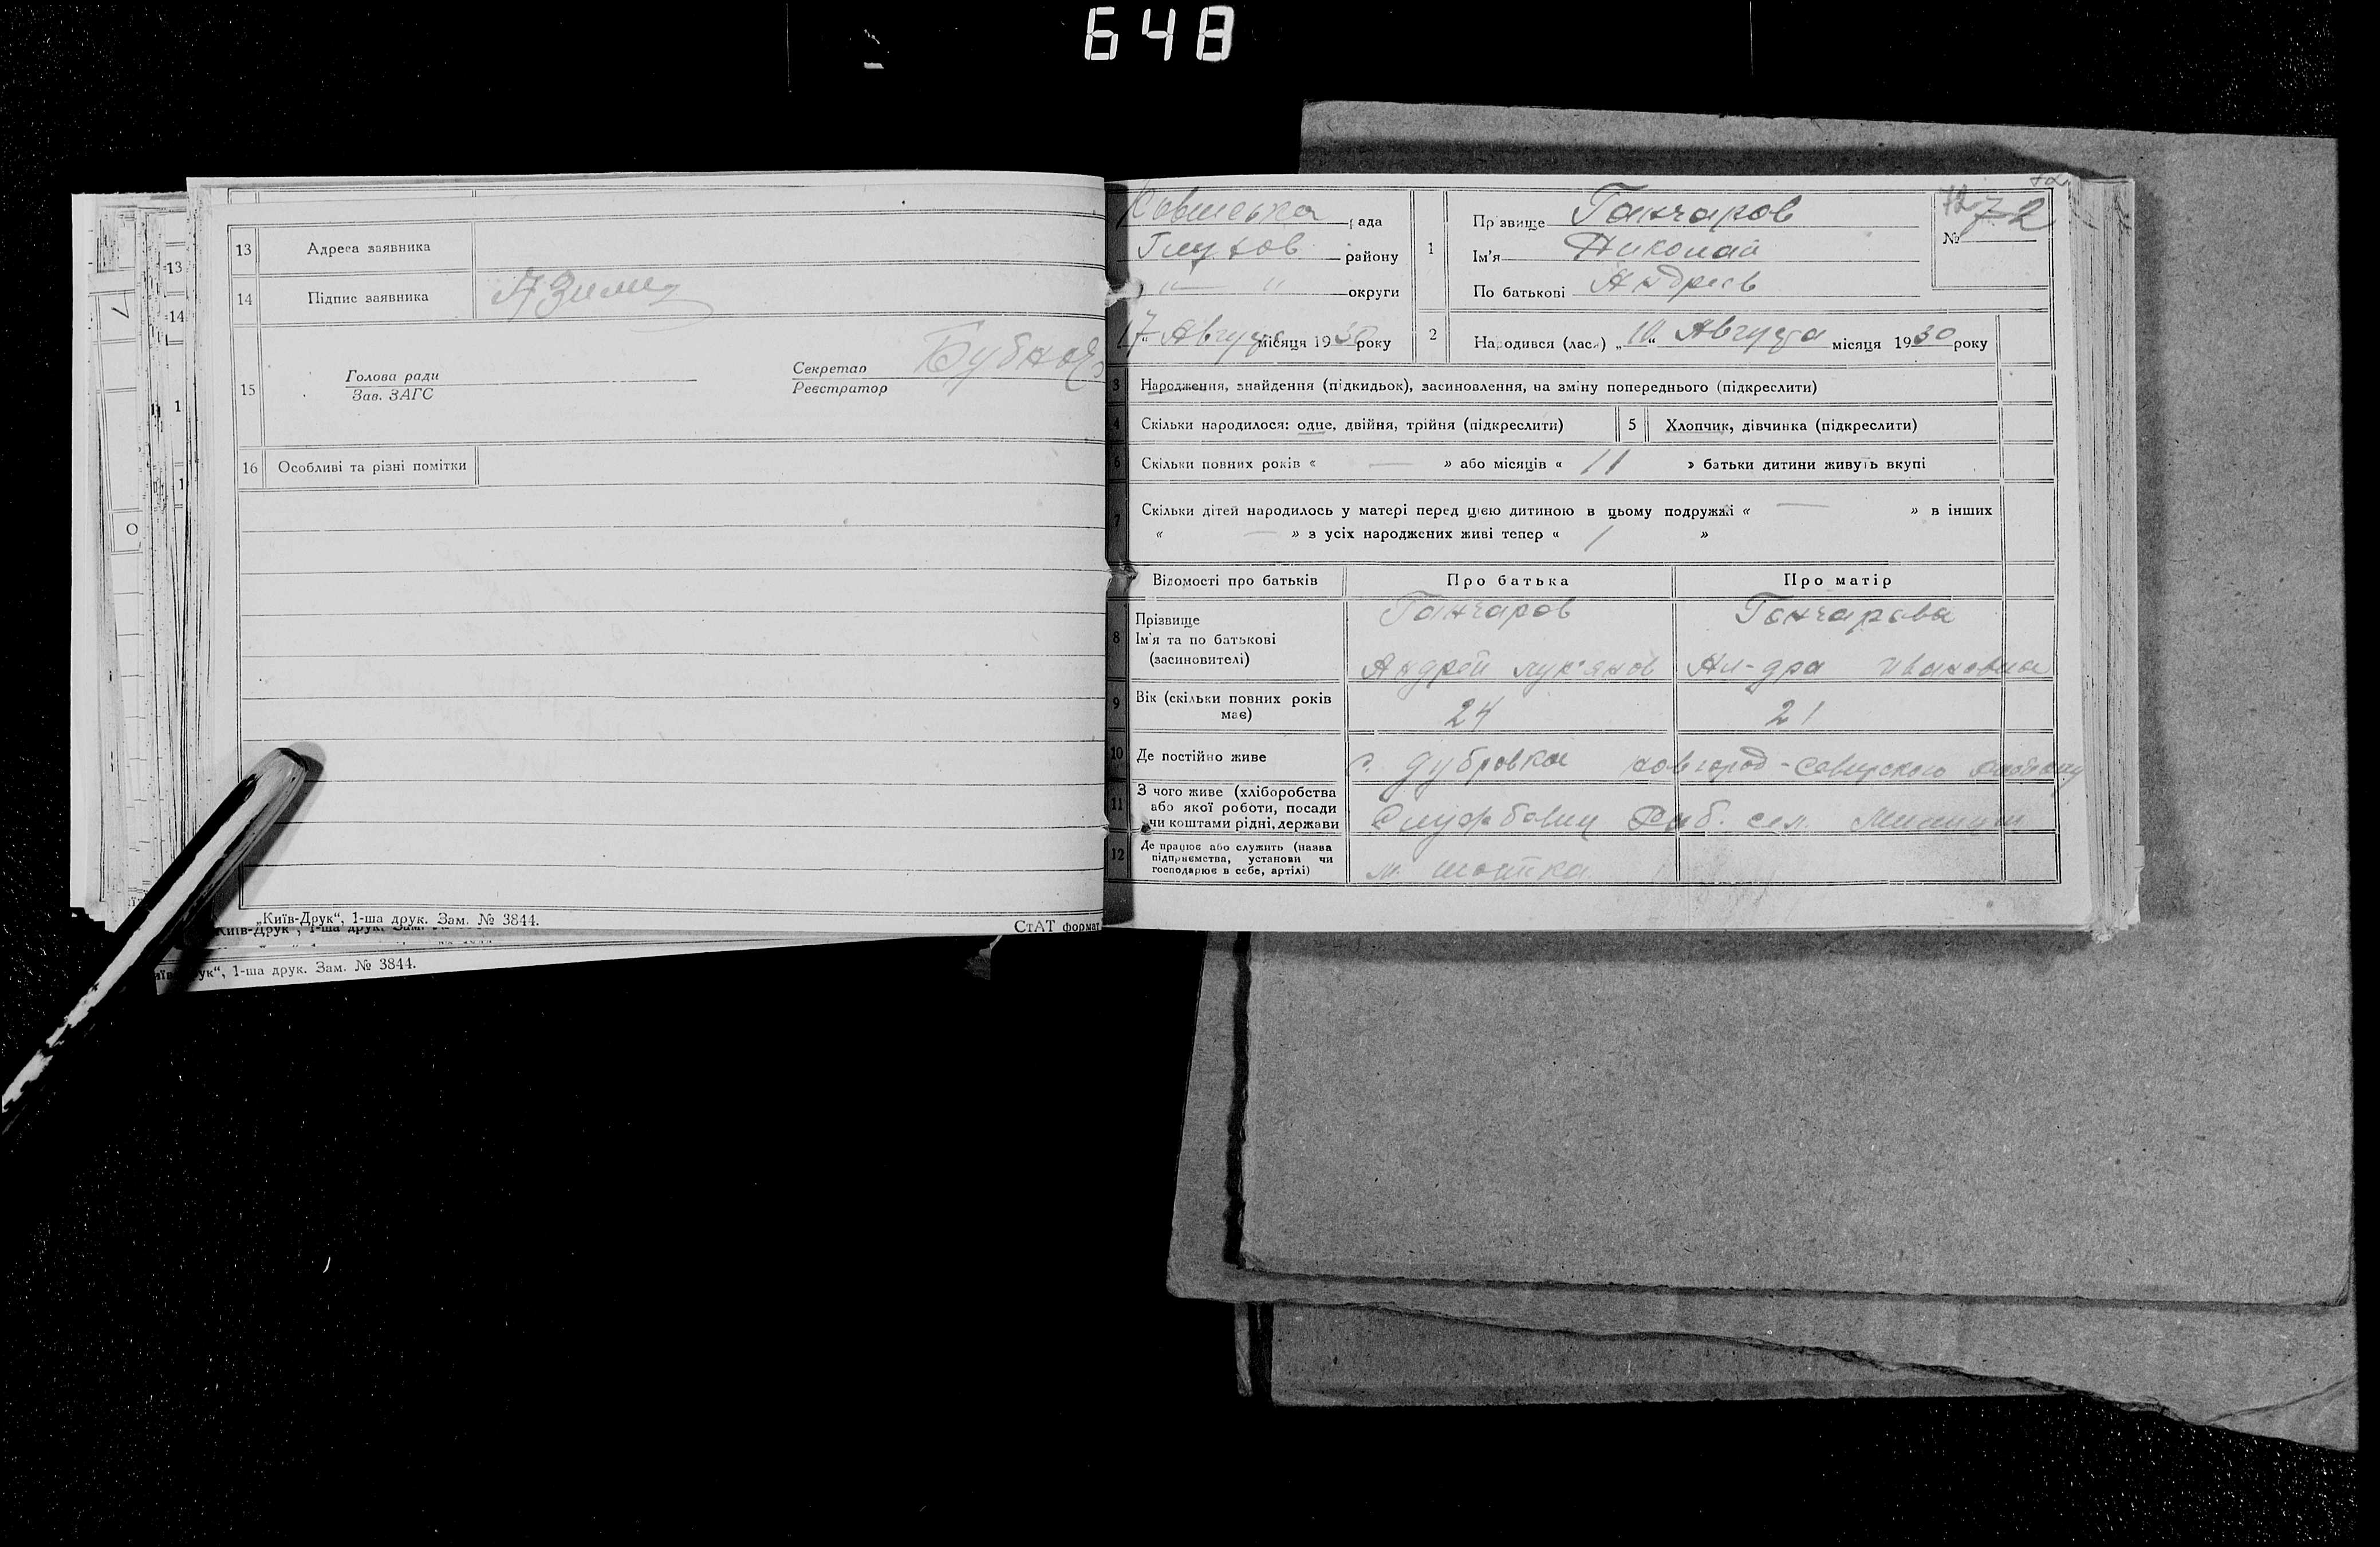 648
13 Адреса заявника
14 Підпис заявника
15 Голова ради
Зав. ЗАГС
Секретар
Реєстратор
16 Особливі та різні помітки
„Київ-Друк“, 1-ша друк. Зам. № 3844.
СтАТ формат
ук“, 1-ша друк. Зам. № 3844.
рада
Глухов району
„ — „ округи
17 Августа місяця 1930 року
1 Прізвище Ганчаров
Ім'я Николай
По батькові Андреев
№ 72
2 Народився (лася) „10“ Августа місяця 1930 року
3 Народження, знайдення (підкидьок), засиновлення, на зміну попереднього (підкреслити)
4 Скільки народилося: одне, двійня, трійня (підкреслити) 5 Хлопчик, дівчинка (підкреслити)
6 Скільки повних років « — » або місяців « 11 » батьки дитини живуть вкупі
7 Скільки дітей народилось у матері перед цією дитиною в цьому подружжі « — » в інших
« — » з усіх народжених живі тепер « 1 »
Відомості про батьків Про батька Про матір
8 Прізвище
Ім'я та по батькові
(засиновителі)
Ганчаров
Андрей Лук'янов
Ганчарова
Ал-дра Ивановна
9 Вік (скільки повних років
має)
24 21
10 Де постійно живе с. Дубровка Новгород-Северского
11 З чого живе (хліборобства
або якої роботи, посади
чи коштами рідні, держави
12 Де працює або служить (назва
підприємства, установи чи
господарює в себе, артілі)